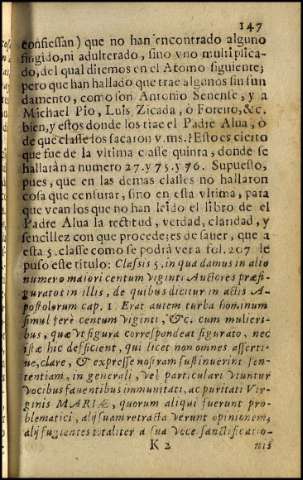 147
confiessan) que no han encontrado alguno
fingido, ni adulterado, sino vno multiplica-
do, del qual diremos en el Atomo siguiente;
pero que han hallado que trae algunos sin fun
damento, como son Antonio Senense, y a
Michael Pio, Luis Zicada, ò Foreiro, &c.
bien, y estos donde los trae el Padre Alua, ò
de que classe los sacaron v.ms.? Esto es cierto
que fue de la vltima classe quinta; donde se
hallaràn a numero 27. y 75. y 76. Supuesto,
pues, que en las demas classes no hallaron
cosa que censurar, sino en esta vltima, para
que vean los que no han leìdo el libro de el
Padre Alua la rectitud, verdad, claridad, y
sencillez con que procede; es de saber, que a
esta 5. classe como se podrà ver a fol. 207 le
puso este titulo: Classis 5. in qua damus in alio
numero maiori centum viginti Auctores præfi-
guratos in illis, de quibus dicitur in actis A-
postolorum cap. 1. Erat autem turba hominum
simul ferè centum viginti, &c. cum mulieri-
bus, quæ vt figura correspondeat figurato. nec
istæ hic deficient, qui licet non omnes asserti-
uè, clarè, & expressè nostram sustinuerint sen-
tentiam, in generali, vel particulari vtuntur
vocibus fauentibus immunitati, ac puritati Vir-
ginis MARIÆ, quorum aliqui fuerunt pro-
blematici, alij suam retractauerunt opinionem,
alij fugientes totaliter a sua voce sanctificatio-
K 2 nis